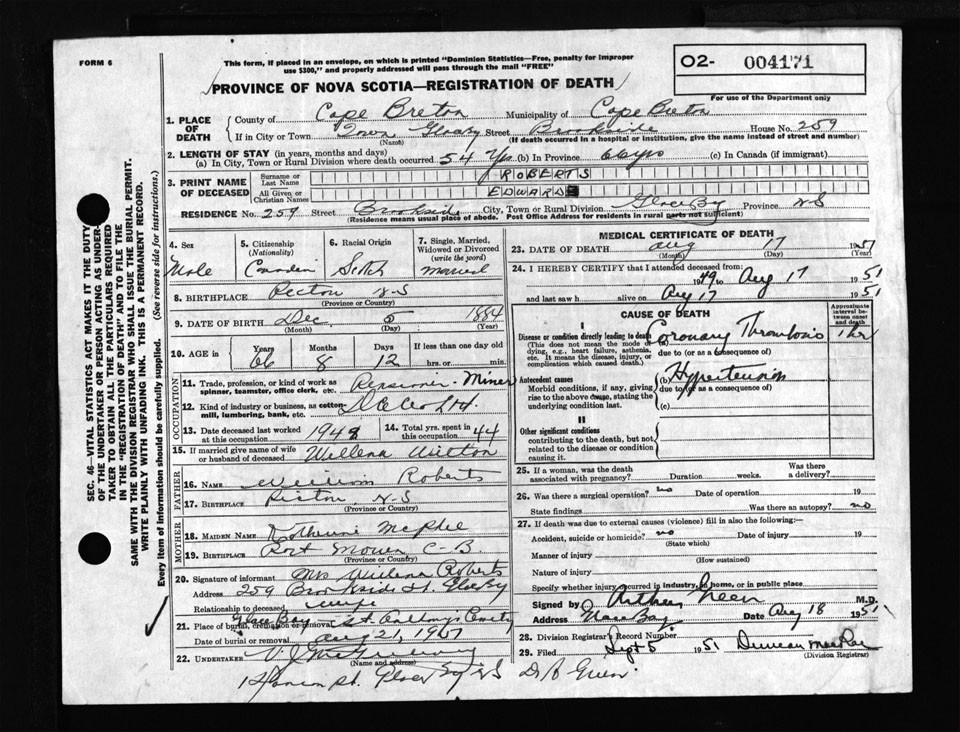 FORM 6
This form, if placed in an envelope, on which is printed "Dominion Statistics—Free, penalty for improper
use $300," and properly addressed will pass through the mail "FREE"
O2- 004171
For use of the Department only
PROVINCE OF NOVA SCOTIA—REGISTRATION OF DEATH
1. PLACE OF DEATH
County of Cape Breton Municipality of Cape Breton
If in City or Town Town Glace Bay Street Brookside House No. 259
(Name) (If death occurred in a hospital or institution, give the name instead of street and number)
2. LENGTH OF STAY (in years, months and days)
(a) In City, Town or Rural Division where death occurred 54 Yrs. (b) In Province 66 yrs (c) In Canada (if immigrant)
3. PRINT NAME OF DECEASED
Surname or Last Name ROBERTS
All Given or Christian Names EDWARD
RESIDENCE No. 259 Street Brookside City, Town or Rural Division Glace Bay Province NS
(Residence means usual place of abode. Post Office Address for residents in rural parts not sufficient)
4. Sex
Male
5. Citizenship
(Nationality)
Canadian
6. Racial Origin
Scotch
7. Single, Married, Widowed or Divorced
(write the word)
Married
8. BIRTHPLACE Pictou N-S
(Province or Country)
9. DATE OF BIRTH Dec 5 1884
(Month) (Day) (Year)
10. AGE in
Years Months Days If less than one day old
66 8 12 hrs. or min.
OCCUPATION
11. Trade, profession, or kind of work as spinner, teamster, office clerk, etc. Pensioner - Miner
12. Kind of industry or business, as cotton-mill, lumbering, bank, etc.
13. Date deceased last worked at this occupation 1949
14. Total yrs. spent in this occupation 44
15. If married give name of wife or husband of deceased Willena
FATHER
16. NAME William Roberts
17. BIRTHPLACE Pictou N-S
(Province or Country)
MOTHER
18. MAIDEN NAME Katherine McPhee
19. BIRTHPLACE Port Morien C-B.
(Province or Country)
20. Signature of informant Mrs Willena Roberts
Address 259 Brookside St. Glace Bay
Relationship to deceased wife
21. Place of burial, cremation or removal Glace Bay St. Anthony's
Date of burial or removal Aug 21, 1951
22. UNDERTAKER V.J. McGillivray
(Name and address)
St. Glace Bay NS
MEDICAL CERTIFICATE OF DEATH
23. DATE OF DEATH Aug 17 1951
(Month) (Day) (Year)
24. I HEREBY CERTIFY that I attended deceased from
1949 to Aug 17 1951
and last saw h alive on Aug 17 1951
CAUSE OF DEATH
Approximate interval between onset and death
I
Disease or condition directly leading to death
(This does not mean the mode of dying, e.g., heart failure, asthenia, etc. It means the disease, injury, or complication which caused death.)
Coronary Thrombosis 1 hr
due to (or as a consequence of)
Antecedent causes
Morbid conditions, if any, giving rise to the above cause, stating the underlying condition last.
(b) Hypertension
due to (or as a consequence of)
(c)
II
Other significant conditions
contributing to the death, but not related to the disease or condition causing it.
25. If a woman, was the death associated with pregnancy? Duration weeks. Was there a delivery?
26. Was there a surgical operation? no Date of operation 19
State findings Was there an autopsy? no
27. If death was due to external causes (violence) fill in also the following:—
Accident, suicide or homicide? no Date of injury 19
(State which)
Manner of injury
(How sustained)
Nature of injury
Specify whether injury occurred in industry, in home, or in public place
Signed by Arthur M.D.
Address Glace Bay Date Aug 18 1951
28. Division Registrar's Record Number
29. Filed Sept 5 1951 Duncan MacRae
(Division Registrar)
SEC. 46—VITAL STATISTICS ACT MAKES IT THE DUTY
OF THE UNDERTAKER OR PERSON ACTING AS UNDER-
TAKER TO OBTAIN ALL THE PARTICULARS REQUIRED
IN THE "REGISTRATION OF DEATH" AND TO FILE THE
SAME WITH THE DIVISION REGISTRAR WHO SHALL ISSUE THE BURIAL PERMIT.
WRITE PLAINLY WITH UNFADING INK. THIS IS A PERMANENT RECORD.
Every item of information should be carefully supplied. (See reverse side for instructions.)